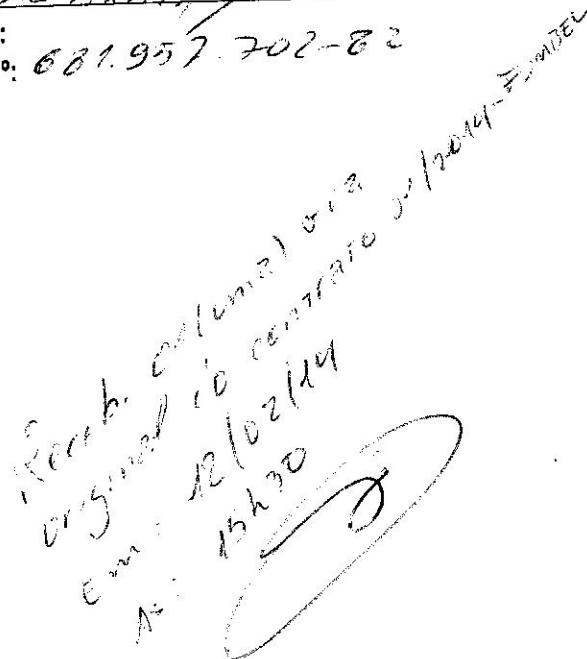 :
o: 681.957.702-82
Receb. 01 (uma) via
original do contrato 01/2014-FUMBEL
Em: 12/02/14
Às: 15h30